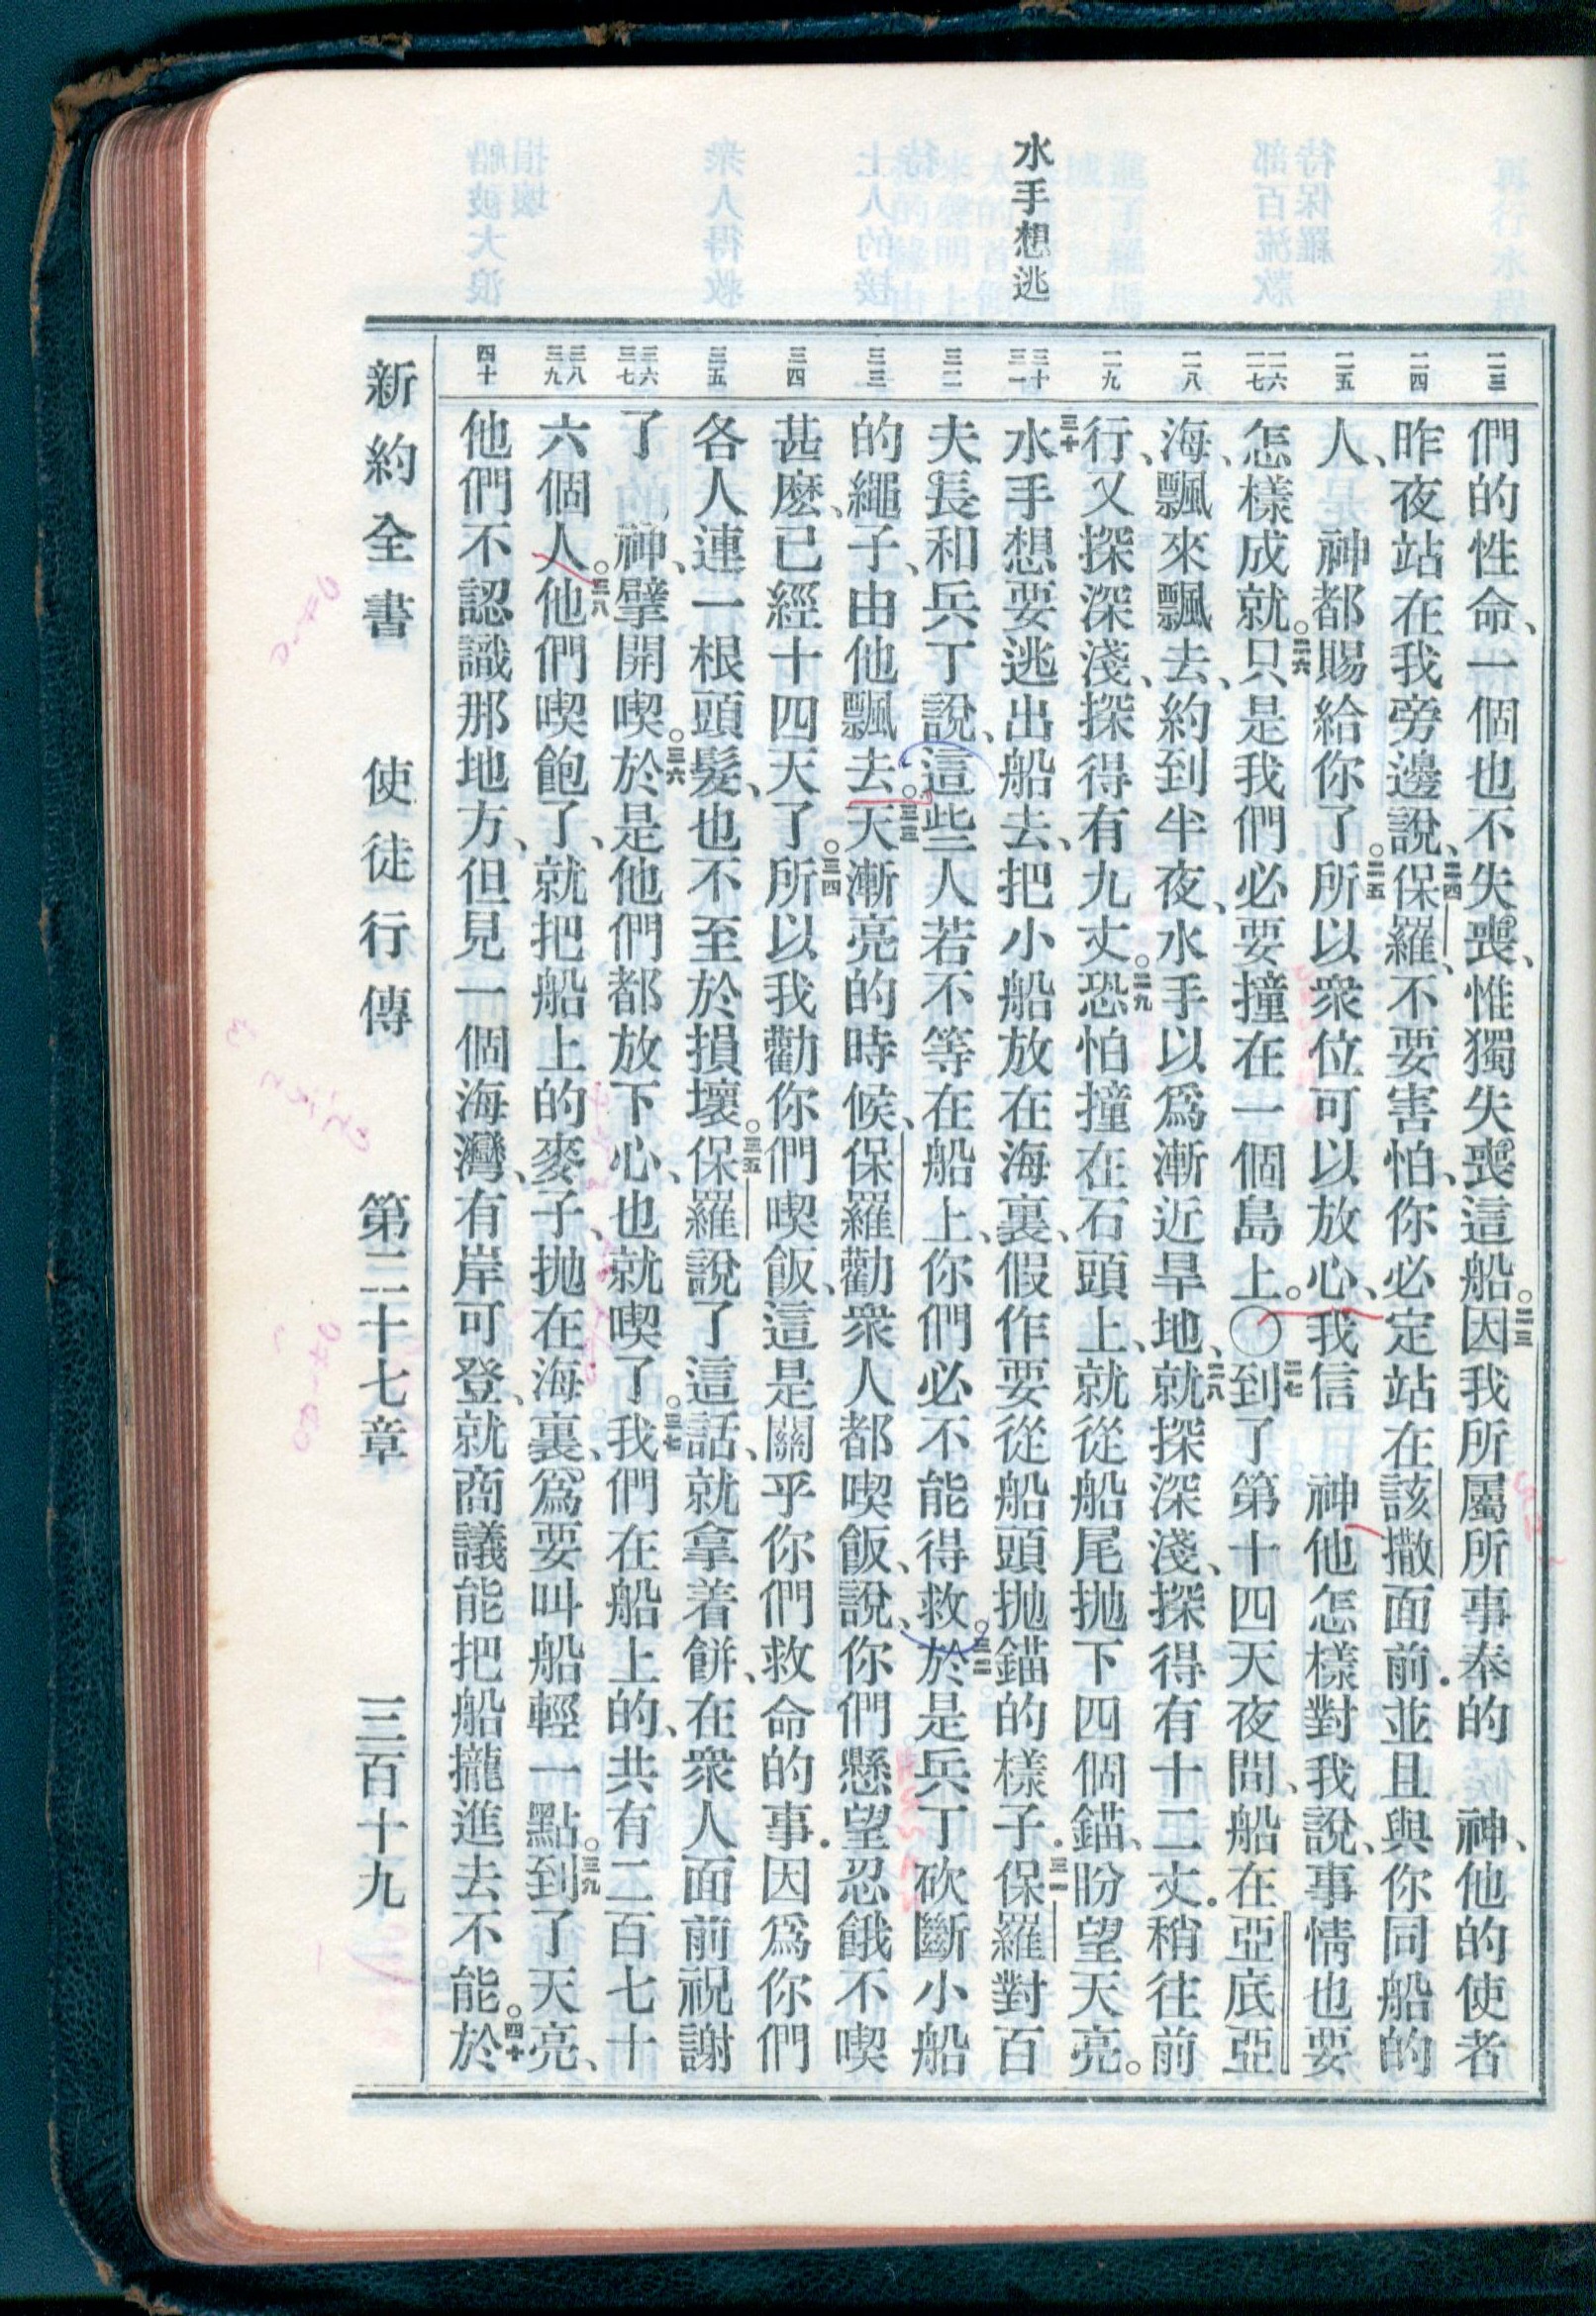 水手想逃
二三
二四
二五
二六
二七
二八
二九
三十
三一
三二
三三
三四
三五
三六
三七
三八
三九
四十
們的性命、一個也不失喪、惟獨失喪這船。二三因我所屬所事奉的　神、他的使者
昨夜站在我旁邊說、二四保羅、不要害怕、你必定站在該撒面前．並且與你同船的
人、　神都賜給你了。二五所以衆位可以放心、我信　神他怎樣對我說、事情也要
怎樣成就。二六只是我們必要撞在一個島上。〇二七到了第十四天夜間、船在亞底亞
海、飄來飄去、約到半夜、水手以爲漸近旱地、二八就探深淺、探得有十二丈．稍往前
行、又探深淺、探得有九丈。二九恐怕撞在石頭上、就從船尾抛下四個錨、盼望天亮。
三十水手想要逃出船去、把小船放在海裏、假作要從船頭抛錨的樣子．三一保羅對百
夫長和兵丁說、這些人若不等在船上、你們必不能得救。三二於是兵丁砍斷小船
的繩子、由他飄去。三三天漸亮的時候、保羅勸衆人都喫飯、說、你們懸望忍餓不喫
甚麽、已經十四天了。三四所以我勸你們喫飯、這是關乎你們救命的事．因爲你們
各人連一根頭髮、也不至於損壞。三五保羅說了這話、就拿着餅、在衆人面前祝謝
了　神、擘開喫。三六於是他們都放下心、也就喫了。三七我們在船上的、共有二百七十
六個人。三八他們喫飽了、就把船上的麥子、抛在海裏、爲要叫船輕一點。三九到了天亮、
他們不認識那地方、但見一個海灣、有岸可登、就商議能把船攏進去不能。四十於
新約全書　使徒行傳　第二十七章　三百十九